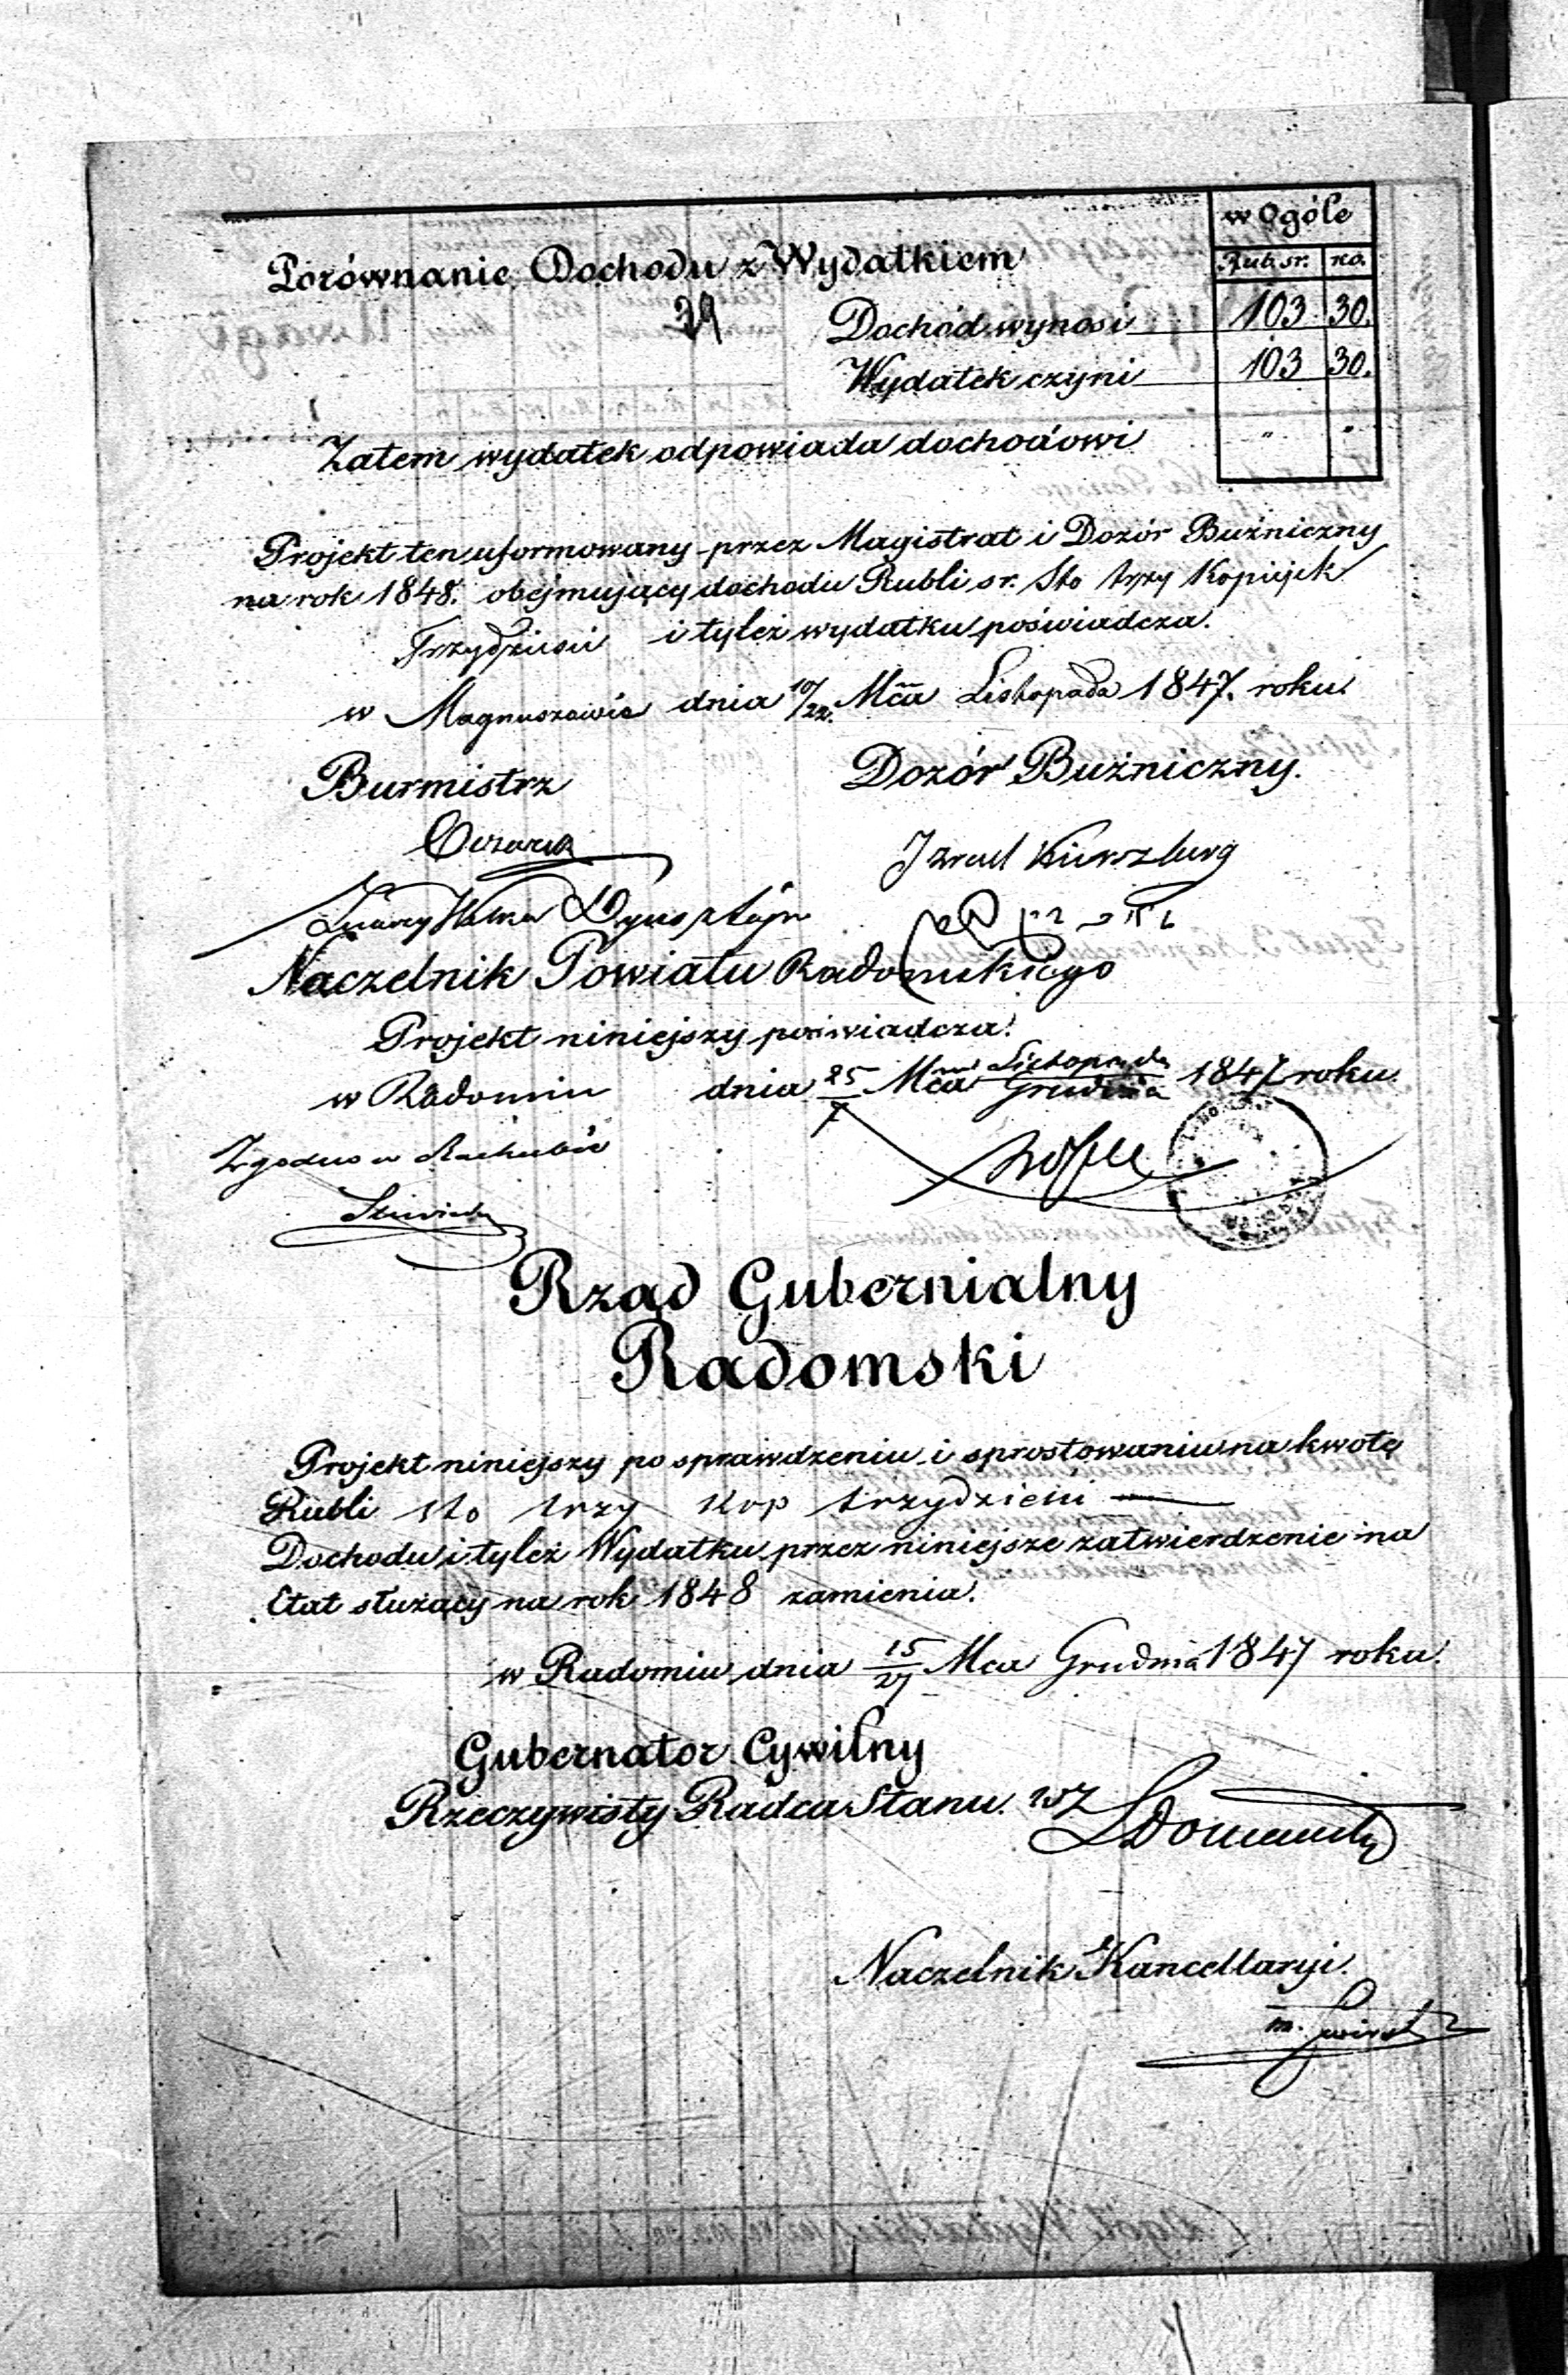 w Ogóle
Porównanie Dochodu z Wydatkiem
Rub. sr. ko.
39
Dochód wynosi 103 30.
Wydatek czyni 103 30.
Zatem wydatek odpowiada dochodowi " "
Projekt ten uformowany przez Magistrat i Dozór Buźniczny
na rok 1848. obejmujący dochodu Rubli sr. Sto trzy Kopiejek
Trzydzieści i tyleż wydatku poświadcza.
w Magnuszewie dnia 10/22. Mca Listopada 1847. roku.
Burmistrz Dozór Buźniczny.
Izrael Kierszberg
Naczelnik Powiatu Radomskiego
Projekt niniejszy poświadcza.
w Radomiu dnia 25/7 Mca Listopada/Grudnia 1847 roku.
Zgodno w Rachubie
Rząd Gubernialny
Radomski
Projekt niniejszy po sprawdzeniu i sprostowaniu na kwotę
Rubli sto trzy kop trzydzieści
Dochodu i tyleż Wydatku przez niniejsze zatwierdzenie na
Etat służący na rok 1848 zamienia.
w Radomiu dnia 15/27 Mca Grudnia 1847 roku.
Gubernator Cywilny
Rzeczywisty Radca Stanu. wz
Naczelnik Kancellaryi.